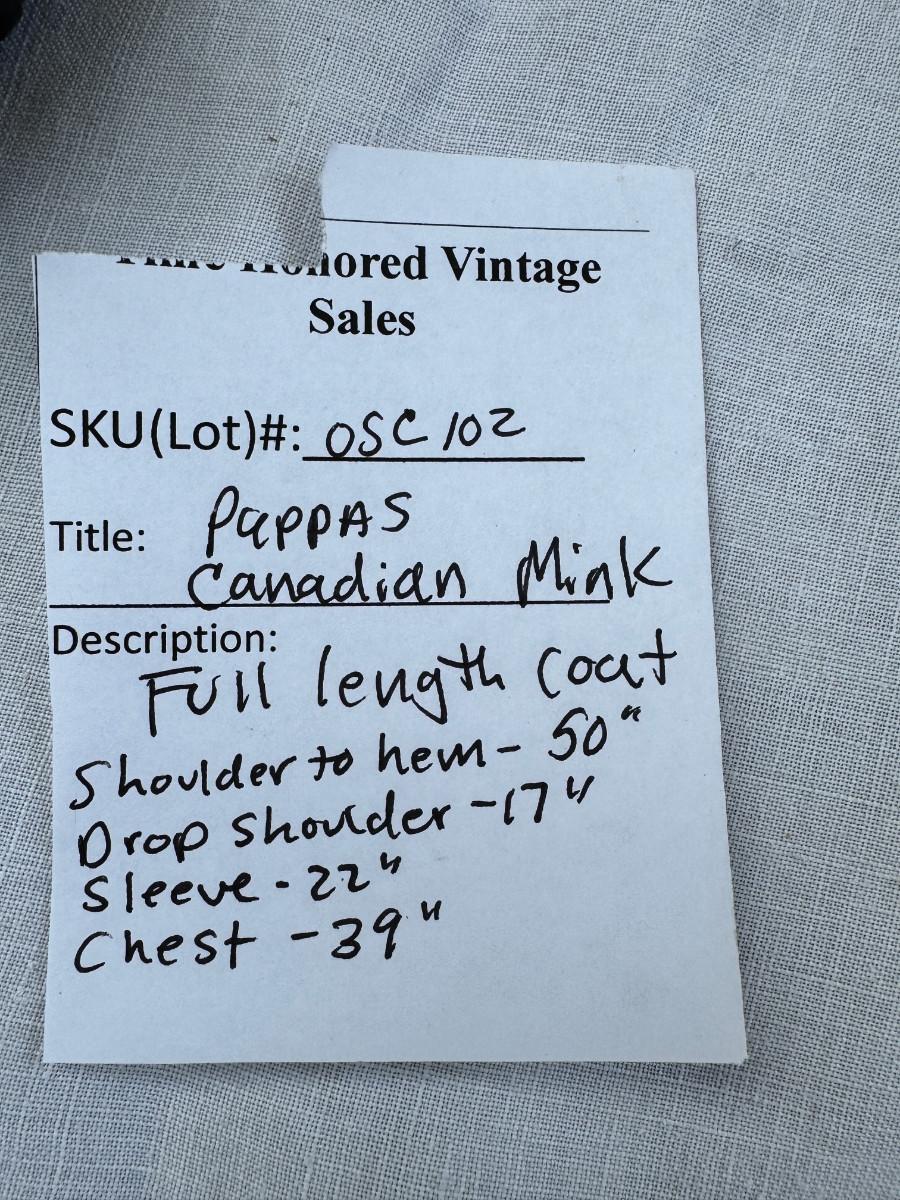 Time Honored Vintage
Sales
SKU(Lot)#: OSC 102
Title: PAPPAS
Canadian Mink
Description:
Full length coat
Shoulder to hem - 50"
Drop shoulder - 17"
Sleeve - 22"
Chest - 39"